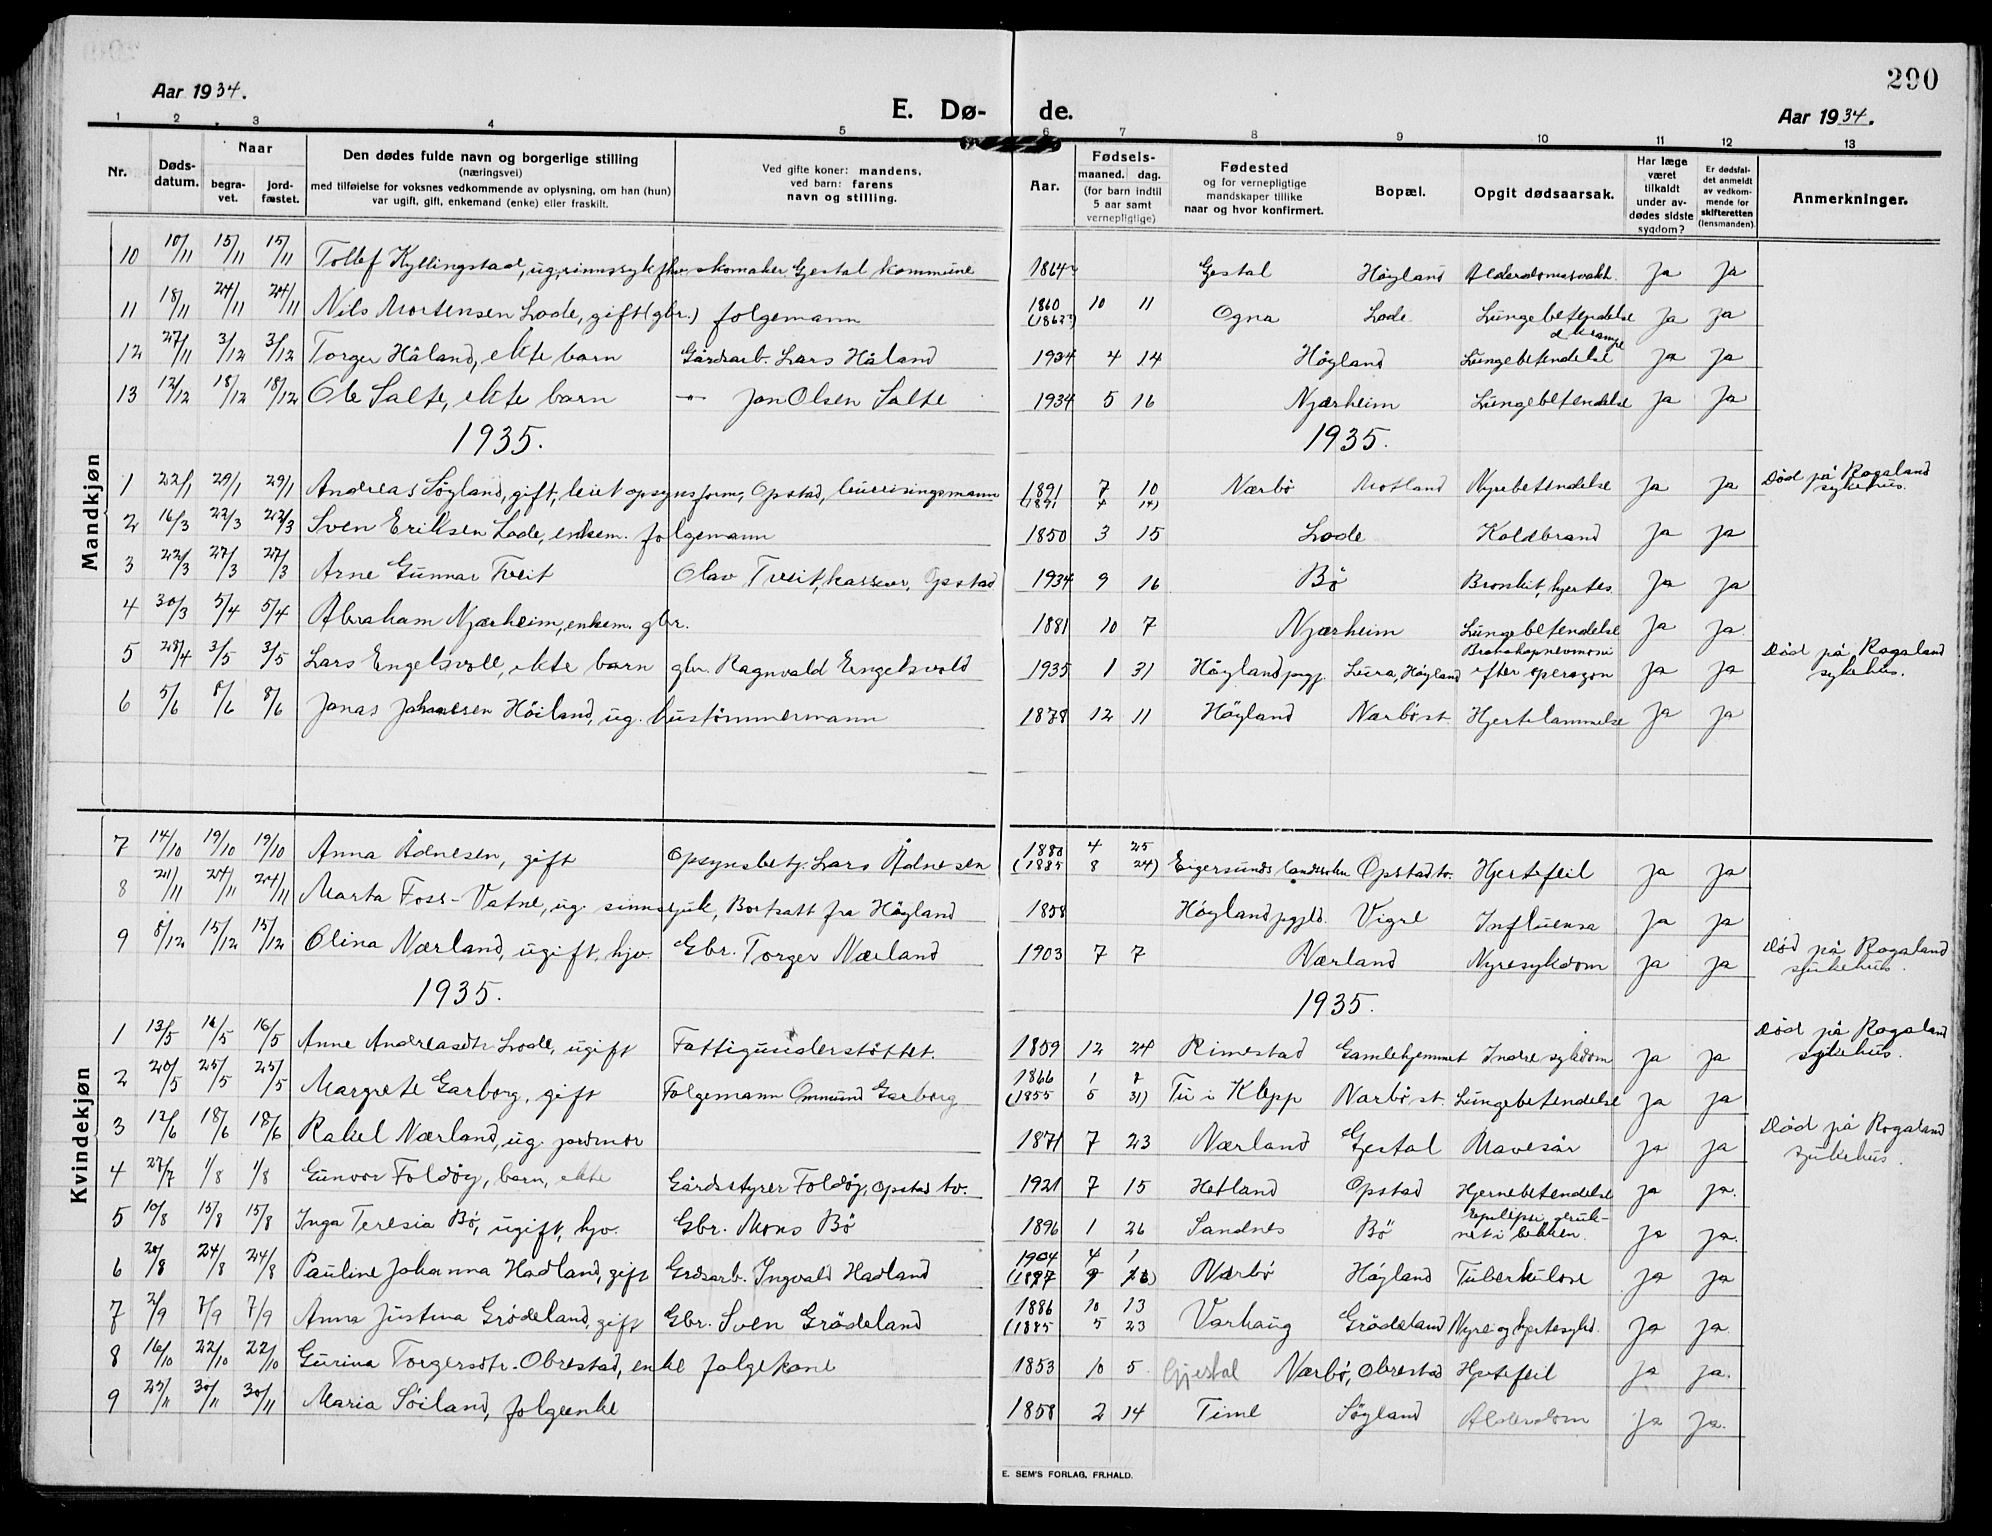 290
Aar 1934. E. Dø- de. Aar 1934.
1 2 3 4 5 6 7 8 9 10 11 12 13
Nr. Døds-datum. Naar begra-vet. jord-fæstet. Den dødes fulde navn og borgerlige stilling (næringsvei) med tilføielse for voksnes vedkommende av oplysning, om han (hun) var ugift, gift, enkemand (enke) eller fraskilt. Ved gifte koner: mandens, ved barn: farens navn og stilling. Aar. Fødsels- maaned. dag. (for barn indtil 5 aar samt vernepligtige) Fødested og for vernepligtige mandskaper tillike naar og hvor konfirmert. Bopæl. Opgit dødsaarsak. Har læge været tilkaldt under av-dødes sidste sygdom? Er dødsfal-det anmeldt av vedkom-mende for skifteretten (lensmanden). Anmerkninger.
Mandkjøn
10 10/11 15/11 15/11 Tollef Kyllingstad, ug, sinnssyk fhv. skomaker, Gjestal kommune 1864 Gestal Høyland Alderdomssvakh. Ja Ja
11 18/11 24/11 24/11 Nils Mortensen Lode, gift (gbr.) folgemann 1860 (1862?) 10 11 Ogna Lode Lungebetendelse Ja Ja
12 27/11 3/12 3/12 Torger Håland, ekte barn Gårdsarb. Lars Håland 1934 4 14 Høyland Lungebetendelse & krampe Ja Ja
13 12/12 18/12 18/12 Ole Salte, ekte barn —"— Jon Olsen Salte 1934 5 16 Njærheim Lungebetendelse Ja Ja
1935. 1935.
1 22/1 29/1 29/1 Andreas Søyland, gift, leiet opsynsform, Opstad, 1891 7 10 (1891 4 14) Nærbø Motland Nyrebetendelse Ja Ja Død på Rogaland sykehus.
2 16/3 22/3 22/3 Sven Eriksen Lode, enkem. folgemann 1850 3 15 Lode Koldbrand Ja Ja
3 22/3 27/3 27/3 Arne Gunnar Tveit Olav Tveit, kasserer, Opstad 1934 9 16 Bø Bronkit, hjertes Ja Ja
4 30/3 5/4 5/4 Abraham Njærheim, enkem. gbr. 1881 10 7 Njærheim Lungebetendelse Ja Ja
5 28/4 3/5 3/5 Lars Engelsvoll, ekte barn gbr. Ragnvald Engelsvold 1935 1 31 Høyland prgj. Lura, Høyland Bronkopnevmoni efter operasjon Ja Ja Død på Rogaland sykehus.
6 5/6 8/6 8/6 Jonas Johannesen Höiland, ug. hustømmermann 1878 12 11 Høyland Nærbø st. Hjertelammelse Ja Ja
Kvindekjøn
7 14/10 19/10 19/10 Anna Ådnesen, gift Opsynsbetj. Lars Ådnesen 1880 4 25 (1885 8 24) Eigersunds landsokn Opstad tv. Hjertefeil Ja Ja
8 21/11 24/11 24/11 Marta Foss-Vatne, ug. sinnssjuk, Bortsatt fra Høyland 1858 Høyland prgjld. Vigre Influensa Ja Ja
9 8/12 15/12 15/12 Olina Nærland, ugift, hjv. Gbr. Torger Nærland 1903 7 7 Nærland Nyresykdom Ja Ja Død på Rogaland sjukehus.
1935. 1935.
1 13/5 16/5 16/5 Anne Andreasdtr. Lode, ugift Fattigunderstøttet. 1859 12 24 Rimestad Gamlehjemmet Indre sykdom Ja Ja Død på Rogaland sykehus.
2 20/5 25/5 25/5 Margrete Garborg, gift Folgemann Ommund Garborg 1866 1 8 (1855 5 31) Tu i Klepp Nærbø st. Lungebetendelse Ja Ja
3 12/6 18/6 18/6 Rakel Nærland, ug. jordmor 1871 7 23 Nærland Gjestal Mavesår Ja Ja Død på Rogaland sjukehus.
4 27/7 1/8 1/8 Gunvor Foldøy, barn, ekte Gårdsstyrer Foldøy, Opstad tv. 1921 7 15 Hetland Opstad Hjernebetendelse Ja Ja.
5 10/8 15/8 15/8 Inga Teresia Bø, ugift, hjv. Gbr. Mons Bø 1896 1 26 Sandnes Bø Epilepsi, druk-net i bekken. Ja Ja.
6 20/8 24/8 24/8 Pauline Johanna Hadland, gift Grdsarb. Ingvald Hadland 1904 4 1 (1897 9 16) Nærbø Høyland Tuberkulose Ja Ja
7 2/9 7/9 7/9 Anna Justina Grødeland, gift Gbr. Sven Grödeland 1886 10 13 (1885 5 23 Varhaug Grödeland Nyre og hjertesykd. Ja Ja
8 16/10 22/10 22/10 Gurina Torgersdtr. Obrestad, enke folgekone 1853 10 5 Gjestal Nærbø, Obrestad Hjertefeil Ja Ja.
9 25/11 30/11 30/11 Maria Söiland, folgeenke 1858 2 14 Time Søyland Alderdom Ja Ja.
E. SEM'S FORLAG, FR.HALD.